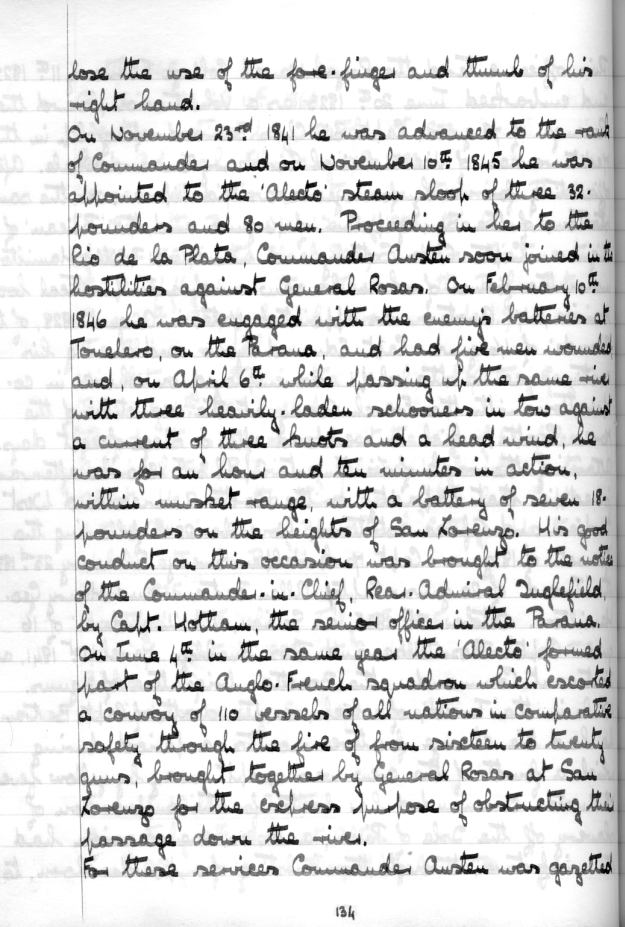 lose the use of the fore-finger and thumb of his
right hand.
On November 23rd 1841 he was advanced to the rank
of Commander and on November 10th 1845 he was
appointed to the 'Alecto' steam sloop of three 32-
pounders and 80 men. Proceeding in her to the
Rio de la Plata, Commander Austen soon joined in the
hostilities against General Rosas. On February 10th
1846 he was engaged with the enemy's batteries at
Tonelero, on the Parana, and had five men wounded
and, on April 6th while passing up the same river
with three heavily-laden schooners in tow against
a current of three knots and a head wind, he
was for an hour and ten minutes in action,
within musket range, with a battery of seven 18-
pounders on the heights of San Lorenzo. His good
conduct on this occasion was brought to the notice
of the Commander-in-Chief, Rear-Admiral Inglefield,
by Capt. Hotham, the senior officer in the Parana.
On June 4th in the same year the 'Alecto' formed
part of the Anglo-French squadron which escorted
a convoy of 110 vessels of all nations in comparative
safety through the fire of from sixteen to twenty
guns, brought together by General Rosas at San
Lorenzo for the express purpose of obstructing their
passage down the river.
For these services Commander Austen was gazetted
134